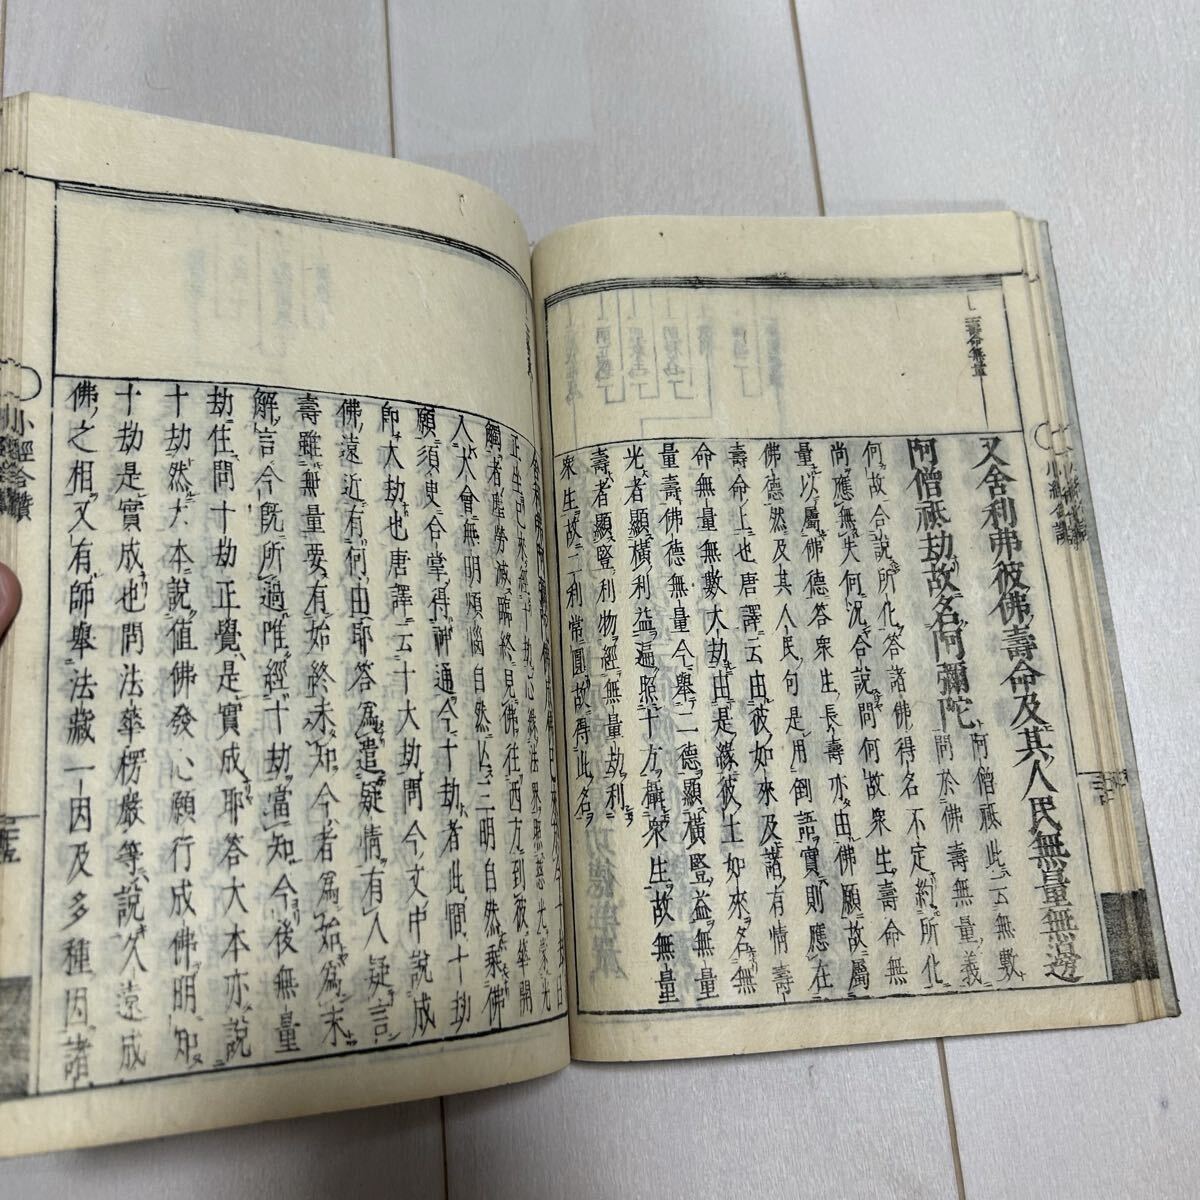 壽命無量
又舍利弗彼佛壽命及其人民無量無邊
阿僧祇劫故名阿彌陀
阿僧祇此云無數
問於佛壽無量義
何故合說所化答諸佛得名不定約所化
尚應無失何況合說問何故衆生壽命無
量以屬佛德答衆生長壽亦由佛願故屬
佛德然及其人民句是用倒語實則應在
壽命上也唐譯云由彼如來及諸有情壽
命無量無數大劫由是緣彼土如來名無
量壽佛德無量今擧二德顯橫竪益無量
光者顯橫利益遍照十方攝衆生故無量
壽者顯竪利物經無量劫利
衆生故二利常圓故得此名
正坐已來經十劫心緣法界照慈光蒙光
觸者塵勞滅臨終見佛往西方到彼華開
入大會無明煩惱自然亾三明自然乘佛
願須臾合掌得神通今十劫者此間十劫
卽大劫也唐譯云十大劫問今文中說成
佛遠近有何由耶答爲遣疑情有人疑言
壽雖無量要有始終未知今者爲始爲末
解言今旣所過唯經十劫當知今後無量
劫住問十劫正覺是實成耶答大本亦說
十劫然大本說値佛發心願行成佛明知
十劫是實成也問法華楞嚴等說久遠成
佛之相又有師擧法藏一因及多種因諸
小經合讚